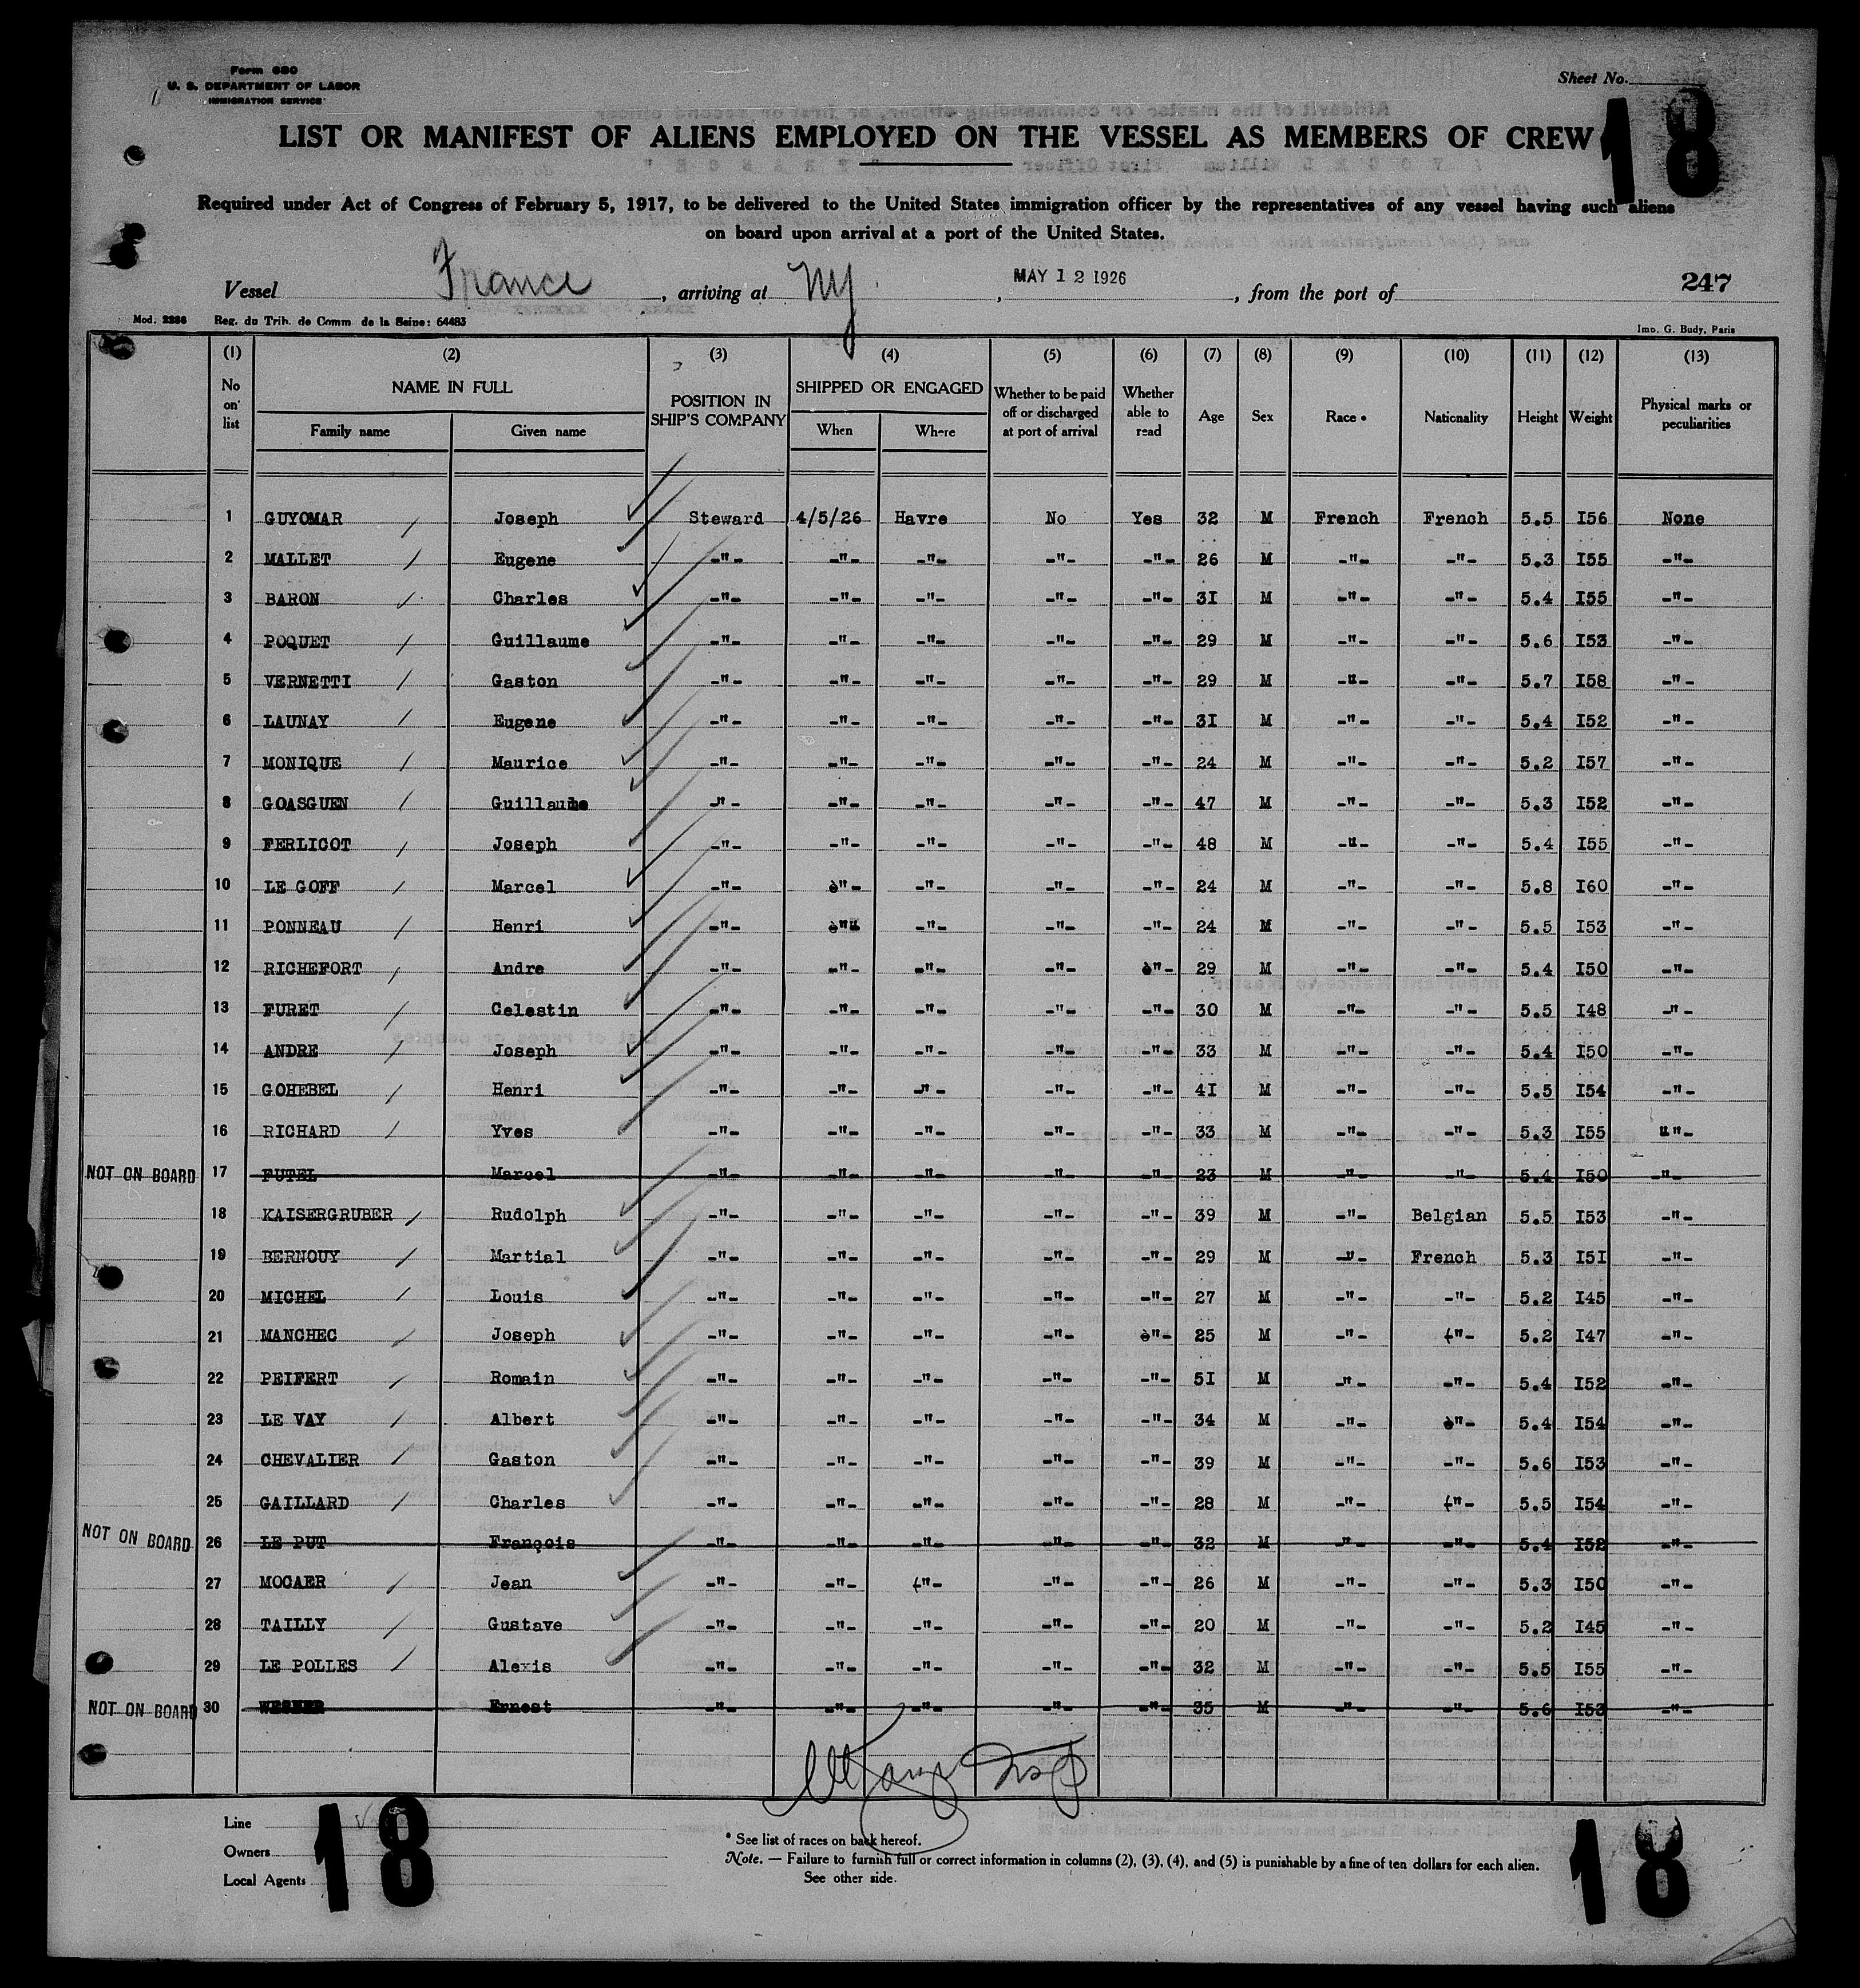 Form 680
U. S. DEPARTMENT OF LABOR
IMMIGRATION SERVICE
Sheet No.
18
LIST OR MANIFEST OF ALIENS EMPLOYED ON THE VESSEL AS MEMBERS OF CREW
Required under Act of Congress of February 5, 1917, to be delivered to the United States immigration officer by the representatives of any vessel having such aliens
on board upon arrival at a port of the United States.
Vessel France, arriving at NY, MAY 12 1926, from the port of 247
Mod. 2286 Reg. du Trib. de Comm de la Seine: 64483
Imp. G. Budy, Paris
(1) (2) (3) (4) (5) (6) (7) (8) (9) (10) (11) (12) (13)
No on list NAME IN FULL POSITION IN SHIP'S COMPANY SHIPPED OR ENGAGED Whether to be paid off or discharged at port of arrival Whether able to read Age Sex Race * Nationality Height Weight Physical marks or peculiarities
Family name Given name When Where
1 GUYOMAR Joseph Steward 4/5/26 Havre No Yes 32 M French French 5.5 I56 None
2 MALLET Eugene -"- -"- -"- -"- -"- 26 M -"- -"- 5.3 I55 -"-
3 BARON Charles -"- -"- -"- -"- -"- 3I M -"- -"- 5.4 I55 -"-
4 POQUET Guillaume -"- -"- -"- -"- -"- 29 M -"- -"- 5.6 I53 -"-
5 VERNETTI Gaston -"- -"- -"- -"- -"- 29 M -"- -"- 5.7 I58 -"-
6 LAUNAY Eugene -"- -"- -"- -"- -"- 3I M -"- -"- 5.4 I52 -"-
7 MONIQUE Maurice -"- -"- -"- -"- -"- 24 M -"- -"- 5.2 I57 -"-
8 GOASGUEN Guillaume -"- -"- -"- -"- -"- 47 M -"- -"- 5.3 I52 -"-
9 FERLICOT Joseph -"- -"- -"- -"- -"- 48 M -"- -"- 5.4 I55 -"-
10 LE GOFF Marcel -"- -"- -"- -"- -"- 24 M -"- -"- 5.8 I60 -"-
11 PONNEAU Henri -"- -"- -"- -"- -"- 24 M -"- -"- 5.5 I53 -"-
12 RICHEFORT Andre -"- -"- -"- -"- -"- 29 M -"- -"- 5.4 I50 -"-
13 FURET Celestin -"- -"- -"- -"- -"- 30 M -"- -"- 5.5 I48 -"-
14 ANDRE Joseph -"- -"- -"- -"- -"- 33 M -"- -"- 5.4 I50 -"-
15 GOHEBEL Henri -"- -"- -"- -"- -"- 4I M -"- -"- 5.5 I54 -"-
16 RICHARD Yves -"- -"- -"- -"- -"- 33 M -"- -"- 5.3 I55 -"-
NOT ON BOARD 17 FUTEL Marcel -"- -"- -"- -"- -"- 23 M -"- -"- 5.4 I50 -"-
18 KAISERGRUBER Rudolph -"- -"- -"- -"- -"- 39 M -"- Belgian 5.5 I53 -"-
19 BERNOUY Martial -"- -"- -"- -"- -"- 29 M -"- French 5.3 I5I -"-
20 MICHEL Louis -"- -"- -"- -"- -"- 27 M -"- -"- 5.2 I45 -"-
21 MANCHEC Joseph -"- -"- -"- -"- -"- 25 M -"- -"- 5.2 I47 -"-
22 PEIFERT Romain -"- -"- -"- -"- -"- 5I M -"- -"- 5.4 I52 -"-
23 LE VAY Albert -"- -"- -"- -"- -"- 34 M -"- -"- 5.4 I54 -"-
24 CHEVALIER Gaston -"- -"- -"- -"- -"- 39 M -"- -"- 5.6 I53 -"-
25 GAILLARD Charles -"- -"- -"- -"- -"- 28 M -"- -"- 5.5 I54 -"-
NOT ON BOARD 26 LE PUT François -"- -"- -"- -"- -"- 32 M -"- -"- 5.4 I52 -"-
27 MOCAER Jean -"- -"- -"- -"- -"- 26 M -"- -"- 5.3 I50 -"-
28 TAILLY Gustave -"- -"- -"- -"- -"- 20 M -"- -"- 5.2 I45 -"-
29 LE POLLES Alexis -"- -"- -"- -"- -"- 32 M -"- -"- 5.5 I55 -"-
NOT ON BOARD 30 Ernest -"- -"- -"- -"- -"- 35 M -"- -"- 5.6 I53 -"-
Line
Owners
Local Agents
18
* See list of races on back hereof.
Note. — Failure to furnish full or correct information in columns (2), (3), (4), and (5) is punishable by a fine of ten dollars for each alien.
See other side.
18